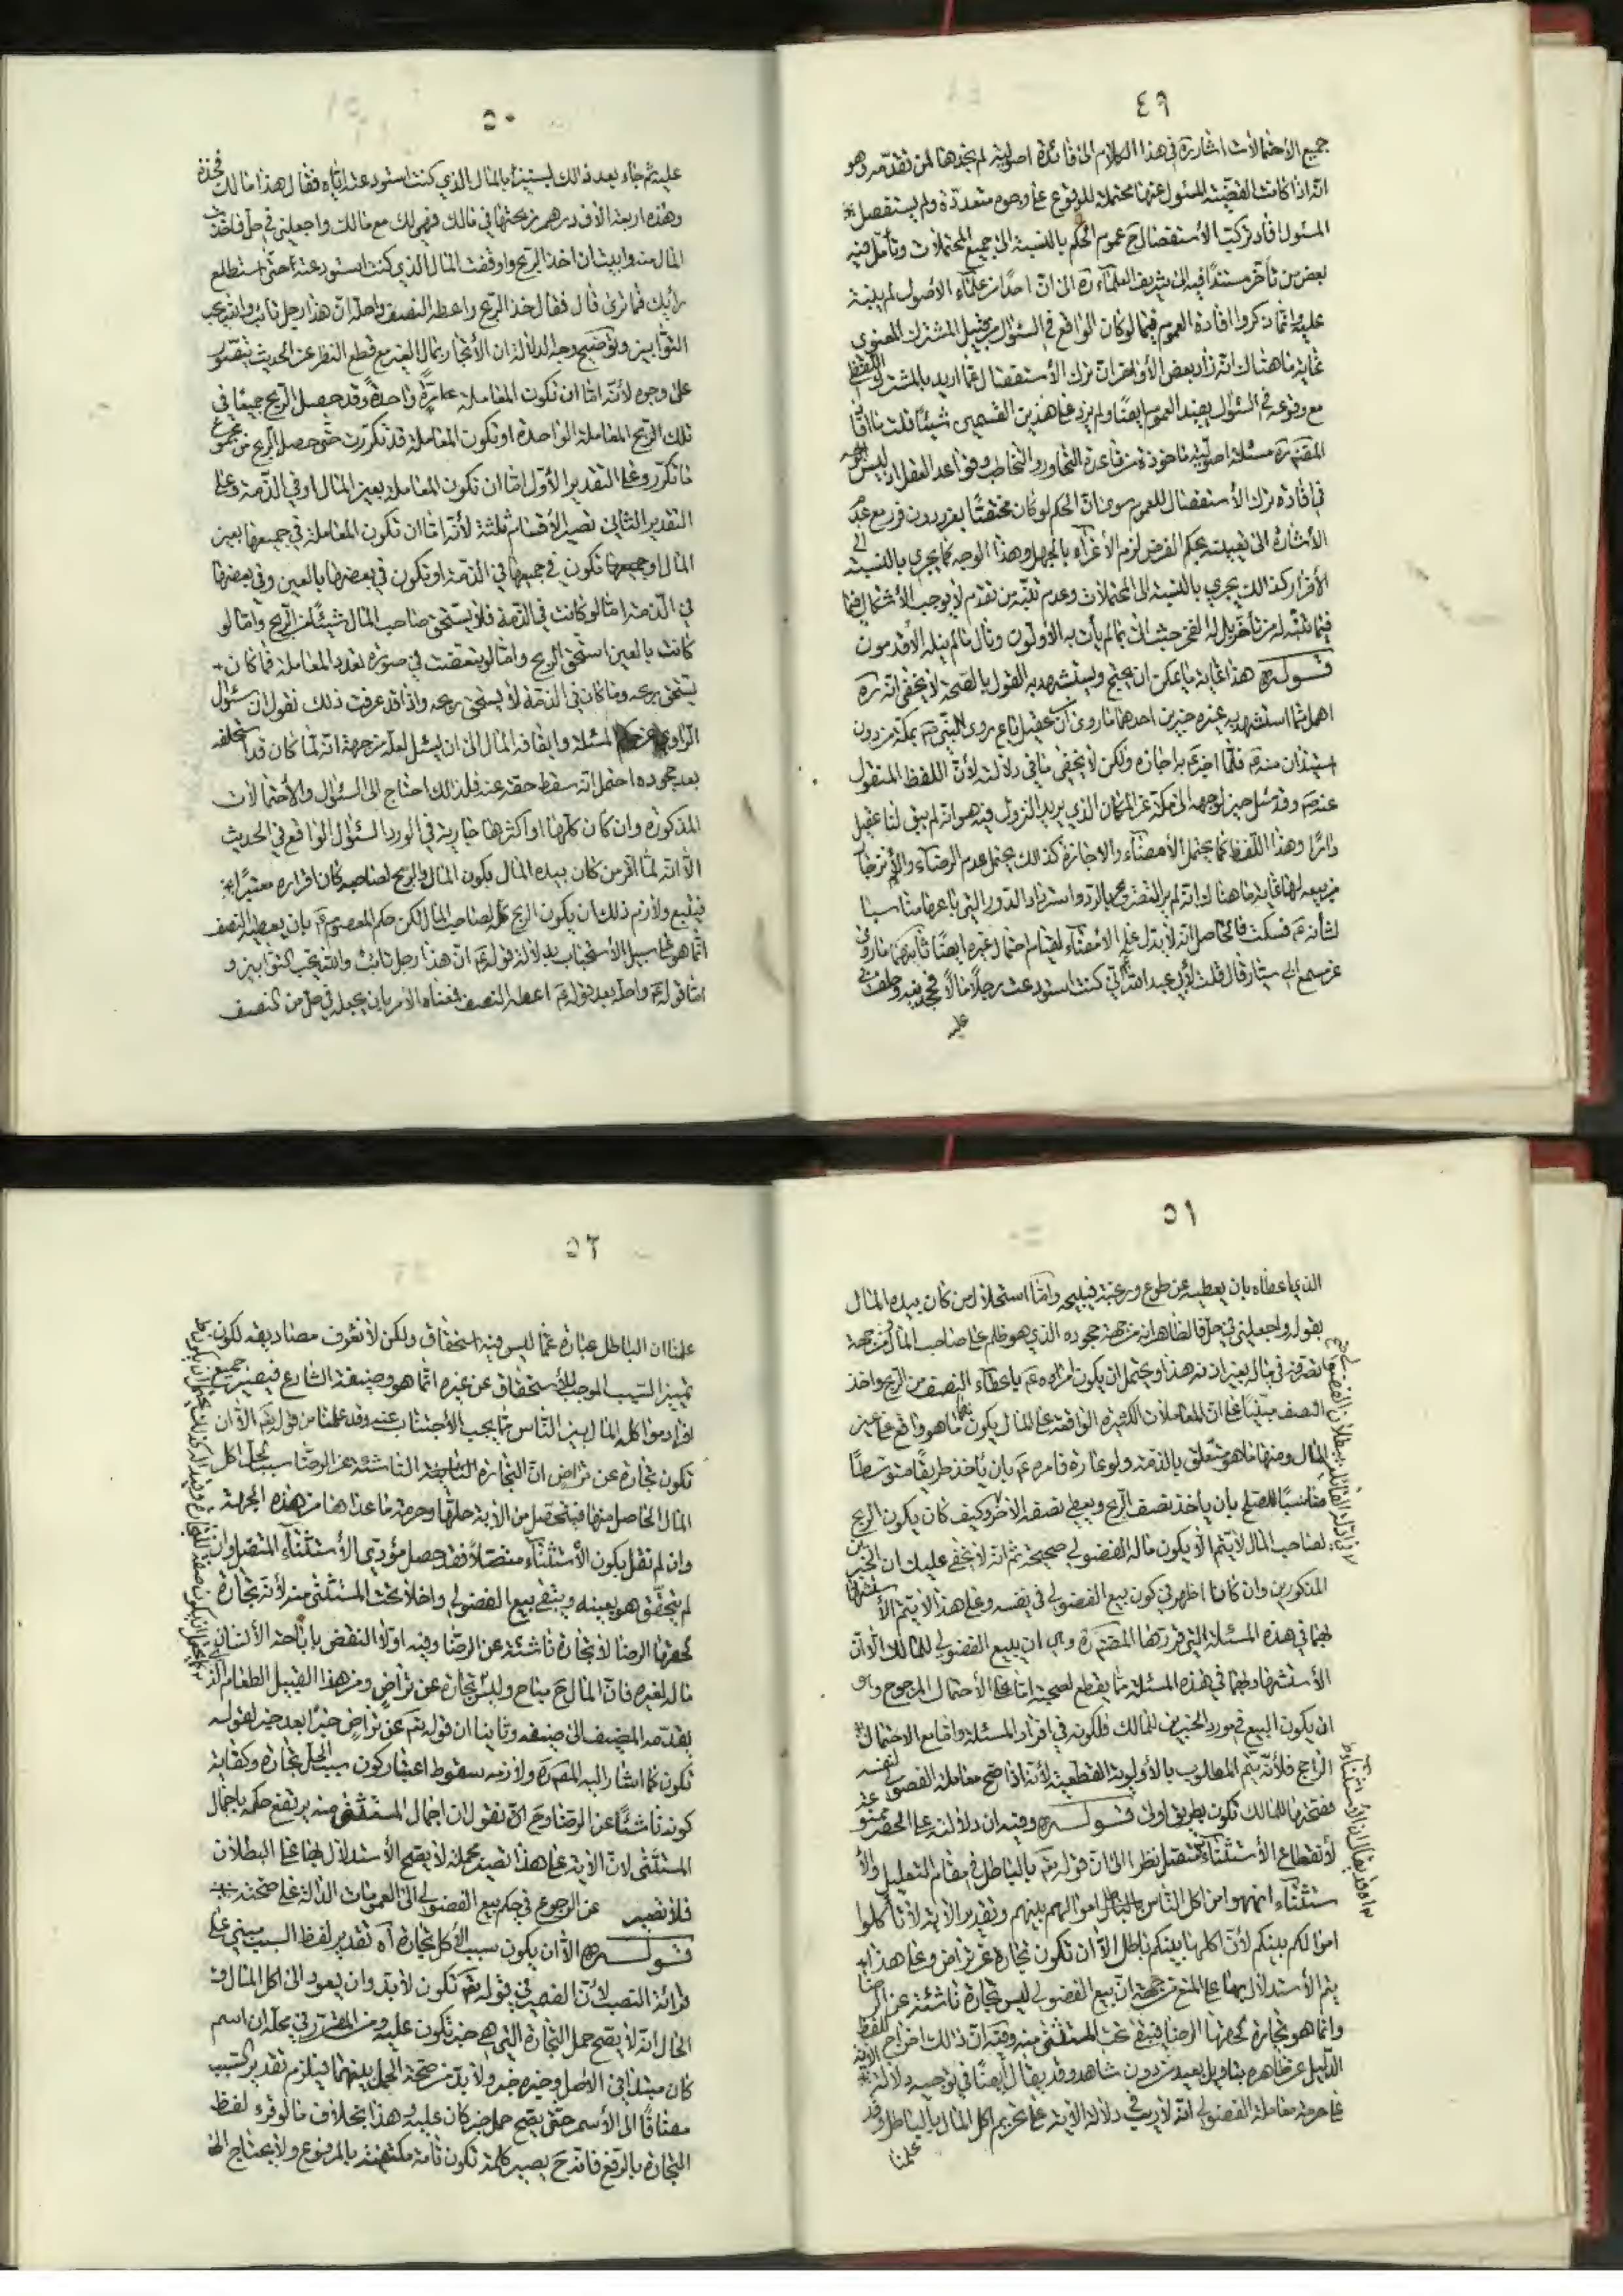 ٤٩
جميع الأحتمالات اشارة في هذا الكلام الى فائدة اصولية لم نجدها لمن تقدّمه وهو
انه اذا كانت القضيّة المسئول عنها محتملة للوقوع على وجوه متعدّدة ولم يستفصل
المسئول افاد ترك الأستفصال ح عموم الحكم بالنسبة الى جميع المحتملات وتأمّل فيه
بعض من تأخر مستندًا فيه الى شريف العلماء ره الى ان احدًا من علماء الأصول لم ينبّه
عليه وانما ذكروا افادة العموم فيما لو كان الواقع في السئوال من قبيل المشترك المعنوي
غاية ما هناك انه زاد بعض الأواخر ان ترك الأستفصال عمّا اريد بالمشترك اللفظي
مع وقوعه في السئوال يفيد العموم ايضًا ولم يزد على هذين القسمين شيئًا قلت ما افاده
المصنّف ره مسئلة اصولية مأخوذة من قاعدة التحاور والتخاطب وقواعد العقل اذ ليس الوجه
في افادة ترك الأستفصال للعموم سوى ان الحكم لو كان مختصًا بفرد دون فرد مع عدم
الأشارة الى تقييده بحكم الفرض لزم الأغراء بالجهل وهذا الوجه كما يجري بالنسبة الى
الأفراد كذالك يجري بالنسبة الى المحتملات وعدم تنبّه من تقدم لا يوجب الأشكال فيما
فيما تنبّه له من تأخر بل له الفخر حيث اتى بما لم يأت به الأولون ونال ما لم ينله الأقدمون
قــولــه ره هذا غاية ما يمكن ان يحتج ويستشهد به القول بالصّحة لا يخفى انه ره
اهمل ممّا استشهد به غيره خبرين احدهما ما روى ان عقيل باع دور النّبي ص بمكة من دون
استيذان منه ص فلما اخبر ص به اجازه ولكن لا يخفى ما في دلالته لأن اللفظ المنقول
عنه ص وقد سئل حين توجهه الى مكة عن المكان الذي يريد النزول فيه هو انه لم يبق لنا عقيل
دارًا وهذا اللفظ كما يحتمل الأمضاء والاجازة كذالك يحتمل عدم الرضاء
من بيعه لها غاية ما هناك انه لم يرالتصريح بالرد واسترداد الدور التي باعها مناسبا
لشأنه ص فسكت فالحاصل انه لا يدل على الأمضاء لقيام احتمال غيره ايضًا ثانيهما ما روى
عن مسمع ابي سيّار قال قلت لأبي عبد الله ع اني كنت استودعت رجلًا مالًا فجحدنيه وحلف لي
عليه
٥٠
عليه ثم جاء بعد ذالك بسنين بالمال الذي كنت استودعته اياه فقال هذا مالك فخذه
وهذه اربعة الاف درهم ربحتها في مالك فهي لك مع مالك واجعلني في حل فاخذت
المال منه وابيت ان اخذ الربح واوقفت المال الذي كنت استودعته حتى استطلع
رأيك فما ترى قال فقال خذ الربح واعطه النصف واحلّه ان هذا رجل تائب والله يحب
التوّابين وتوضيح وجه الدلالة ان الأتجار بمال الغير مع قطع النظر عن الحديث يتصوّر
على وجوه لأنّه امّا ان تكون المعاملة واحدةً وقد حصل الربح جميعًا في
تلك المعاملة الواحدة او تكون المعاملة قد تكررت حتى حصل الربح من مجموع
ما تكرر وعلى التقدير الأول امّا ان تكون المعاملة بعين المال او في الذّمة وعلى
التقدير الثاني تصير الأقسام ثلثة لأنّه امّا ان تكون المعاملة في جميعها بعين
المال او تكون في جميعها في الذّمة او تكون في بعضها بالعين وفي بعضها
في الذّمة امّا لو كانت في الذّمة فلا يستحق صاحب المال شيئًا من الربح وامّا لو
كانت بالعين استحق الربح وامّا لو تبعّضت في صورة تعدد المعاملة فما كان
يستحق ربحه وما كان في الذّمة لا يستحق ربحه واذا قد عرفت ذلك نقول ان سئوال
الراوي عن المسئلة وايقافه المال الى ان يسئل لعله من جهة انه لمّا كان قد استحلفه
بعد جحوده احتمل انه سقط حقه عنه فلذالك احتاج الى السئوال والأحتمالات
المذكورة وان كان كلّها او اكثرها جارية في المورد السئوال الواقع في الحديث
الّا انه لمّا اقر من كان بيده المال بكون المال والربح لصاحبه كان اقراره معتبرًا
فيتّبع ولازم ذلك ان يكون الربح كلّه لصاحب المال لكن حكم المعصوم ع بان يعطيه النصف
انّما هو على سبيل الأستحباب بدلالة قوله ع ان هذا رجل تائب والله يحب التوّابين و
امّا قوله ع واحلّه بعد قوله ع اعطه النصف فمعناه الأمر بان يجعله في حل من النصف
٥١
الذي اعطاه بان يعطيه عن طوع ورغبة فيبيحه وامّا استحلال من كان بيده المال
بقوله واجعلني في حل فالظاهر انه من جهة جحوده الذي هو ظلم على صاحب المال ومن جهة
تصرفه في ماله بغير اذنه هذا ويحتمل ان يكون امراره ع باعطاء النصف من الربح واخذ
النصف مبنيًّا على ان المعاملات الكثيرة الواقعة على المال يكون منها ما هو واقع على عين
المال ومنها ما هو متعلّق بالذّمة ولو عادة فامره ع بان يأخذ طريقًا متوسّطًا
مناسبًا للصلح بان يأخذ نصف الربح ويعطي نصفه الأخر وكيف كان يكون الربح
لصاحب المال لا يتم الّا بكون ماله الفضولي صحيحة ثم انه لا يخفى عليك ان الخبرين
المذكورين وان كانا اظهر في كون بيع الفضولي في نفسه وعلى هذا لا يتم الأستشهاد
بهما في هذه المسئلة التي قررها المصنّف ره وهي ان يبيع الفضولي للمالك الّا ان
الأستشهاد بهما في هذه المسئلة مما يقطع لصحته امّا على الأحتمال المرجوح وهو
ان يكون البيع في مورد الخبرين للمالك فلكونه في افراد المسئلة وامّا مع الاحتمال
الراجح فلأنّه يتم المطلوب بالأولوية القطعية لأنّه اذا صح معاملة الفضولي لنفسه
فصحتها للمالك تكون بطريق اولى قــولــه ره وفيه ان دلالته على الحصر ممنوعة
لأنقطاع الأستثناء نظر الى ان قوله تع بالباطل في مقام التعليل والأ
ستثناء من اكل الناس اموالهم بينهم وتقدير الأية لا تأكلوا
اموالكم بينكم لأن اكلها بينكم باطل الّا ان تكون تجارة عن تراض وعلى هذا
يتم الأستدلال بها على المنع من جهة ان بيع الفضولي ليس تجارة ناشئة عن الرضا
وانّما هو تجارة لحقها الرضا فيبقى تحت المستثنى منه وفيه ان ذالك اخراج اللفظ
الدّليل عن ظاهره بتأويل بعيد من دون شاهد وقد يقال ايضًا في توجيه دلالة الأية
على حرمة معاملة الفضولي انّه لا ريب في دلالة الأية على تحريم اكل المال بالباطل وقد
علمنا
٥٢
علمنا ان الباطل عبارة عمّا ليس فيه استحقاق ولكن لا نعرف مصاديقه لكون
تمييز السّبب الموجب للأستحقاق عن غيره انّما هو وضيفة الشارع فيصير جميع
افراد موارد اكل المال بين النّاس ممّا يجب الأجتناب عنه وقد علمنا من قوله تع الّا ان
تكون تجارة عن تراض انّ التجارة الناشئة عن الرضا سبب لحل اكل
المال الحاصل منها فيتحصّل من الأية حلّها وحرمة ما عداها من هذه الجهة
وان لم نقل بكون الأستثناء متصلًا فقد حصل مؤدّى الأستثناء المتصل وان
لم يتحقّق هو بعينه ويبقى بيع الفضولي داخلا تحت المستثنى منه لأنّه تجارة
لحقها الرضا لا تجارة ناشئة عن الرضا وفيه اولًا النقض باباحة الأنسان
ماله لغيره فانّ المال ح مباح وليس تجارة عن تراض ومن هذا القبيل الطعام الّذي
يقدّمه المضيف الى ضيفه وثانيا ان قوله تع عن تراض خبرًا بعد خبر لقوله
تكون كما اشار اليه المصنف ره ولازمه سقوط اعتبار كون سبب الحل تجارة وكفاية
كونه ناشئًا عن الرضا وح نقول ان اجمال المستثنى منه يرتفع حكمه باجمال
المستثنى لانّ الأية على هذا تصير مجملة لا يصح الأستدلال بها على البطلان
فلا تصير عن الرجوع في حكم بيع الفضولي الى العمومات الدّالة على صحته
قــولــه ره الّا ان يكون سبب الأكل تجارة اه تقدير لفظ السبب مبني على
قرائة النصب لأنّ الضمير في قوله تع تكون لا بد وان يعود الى اكل المال و
الحال انّه لا يصح حمل التجارة الّتي هي خبر تكون عليه ومن المقرر في محله ان اسم
كان مبتدأ في الأصل وخبره خبر ولا بد من صحة الحمل بينهما فيلزم تقدير السّبب
مضافًا الى الأسم حتى يصح حمل خبر كان عليه وهذا بخلاف ما لو قرء لفظ
التجارة بالرفع فانه ح يصير كلمة تكون تامة مكتفية بالمرفوع ولا يحتاج الى